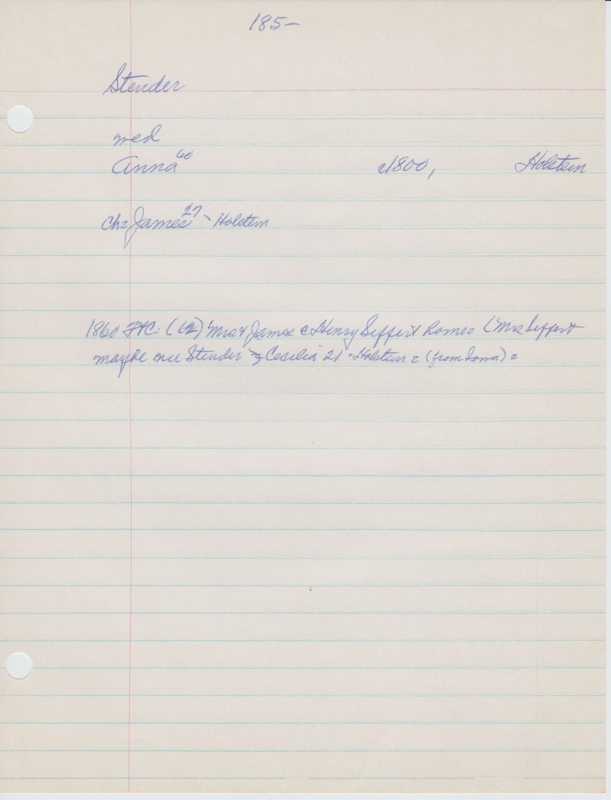 185-
Stender
med
Anna 60 c1800, Holstein
Ch: James 27 - Holstein
1860 (12) Mrs & James c Henry Seffert Romeo (Mrs Seffert
maybe nee Stender Cecilia 21 - Holstein = (from Iowa) =